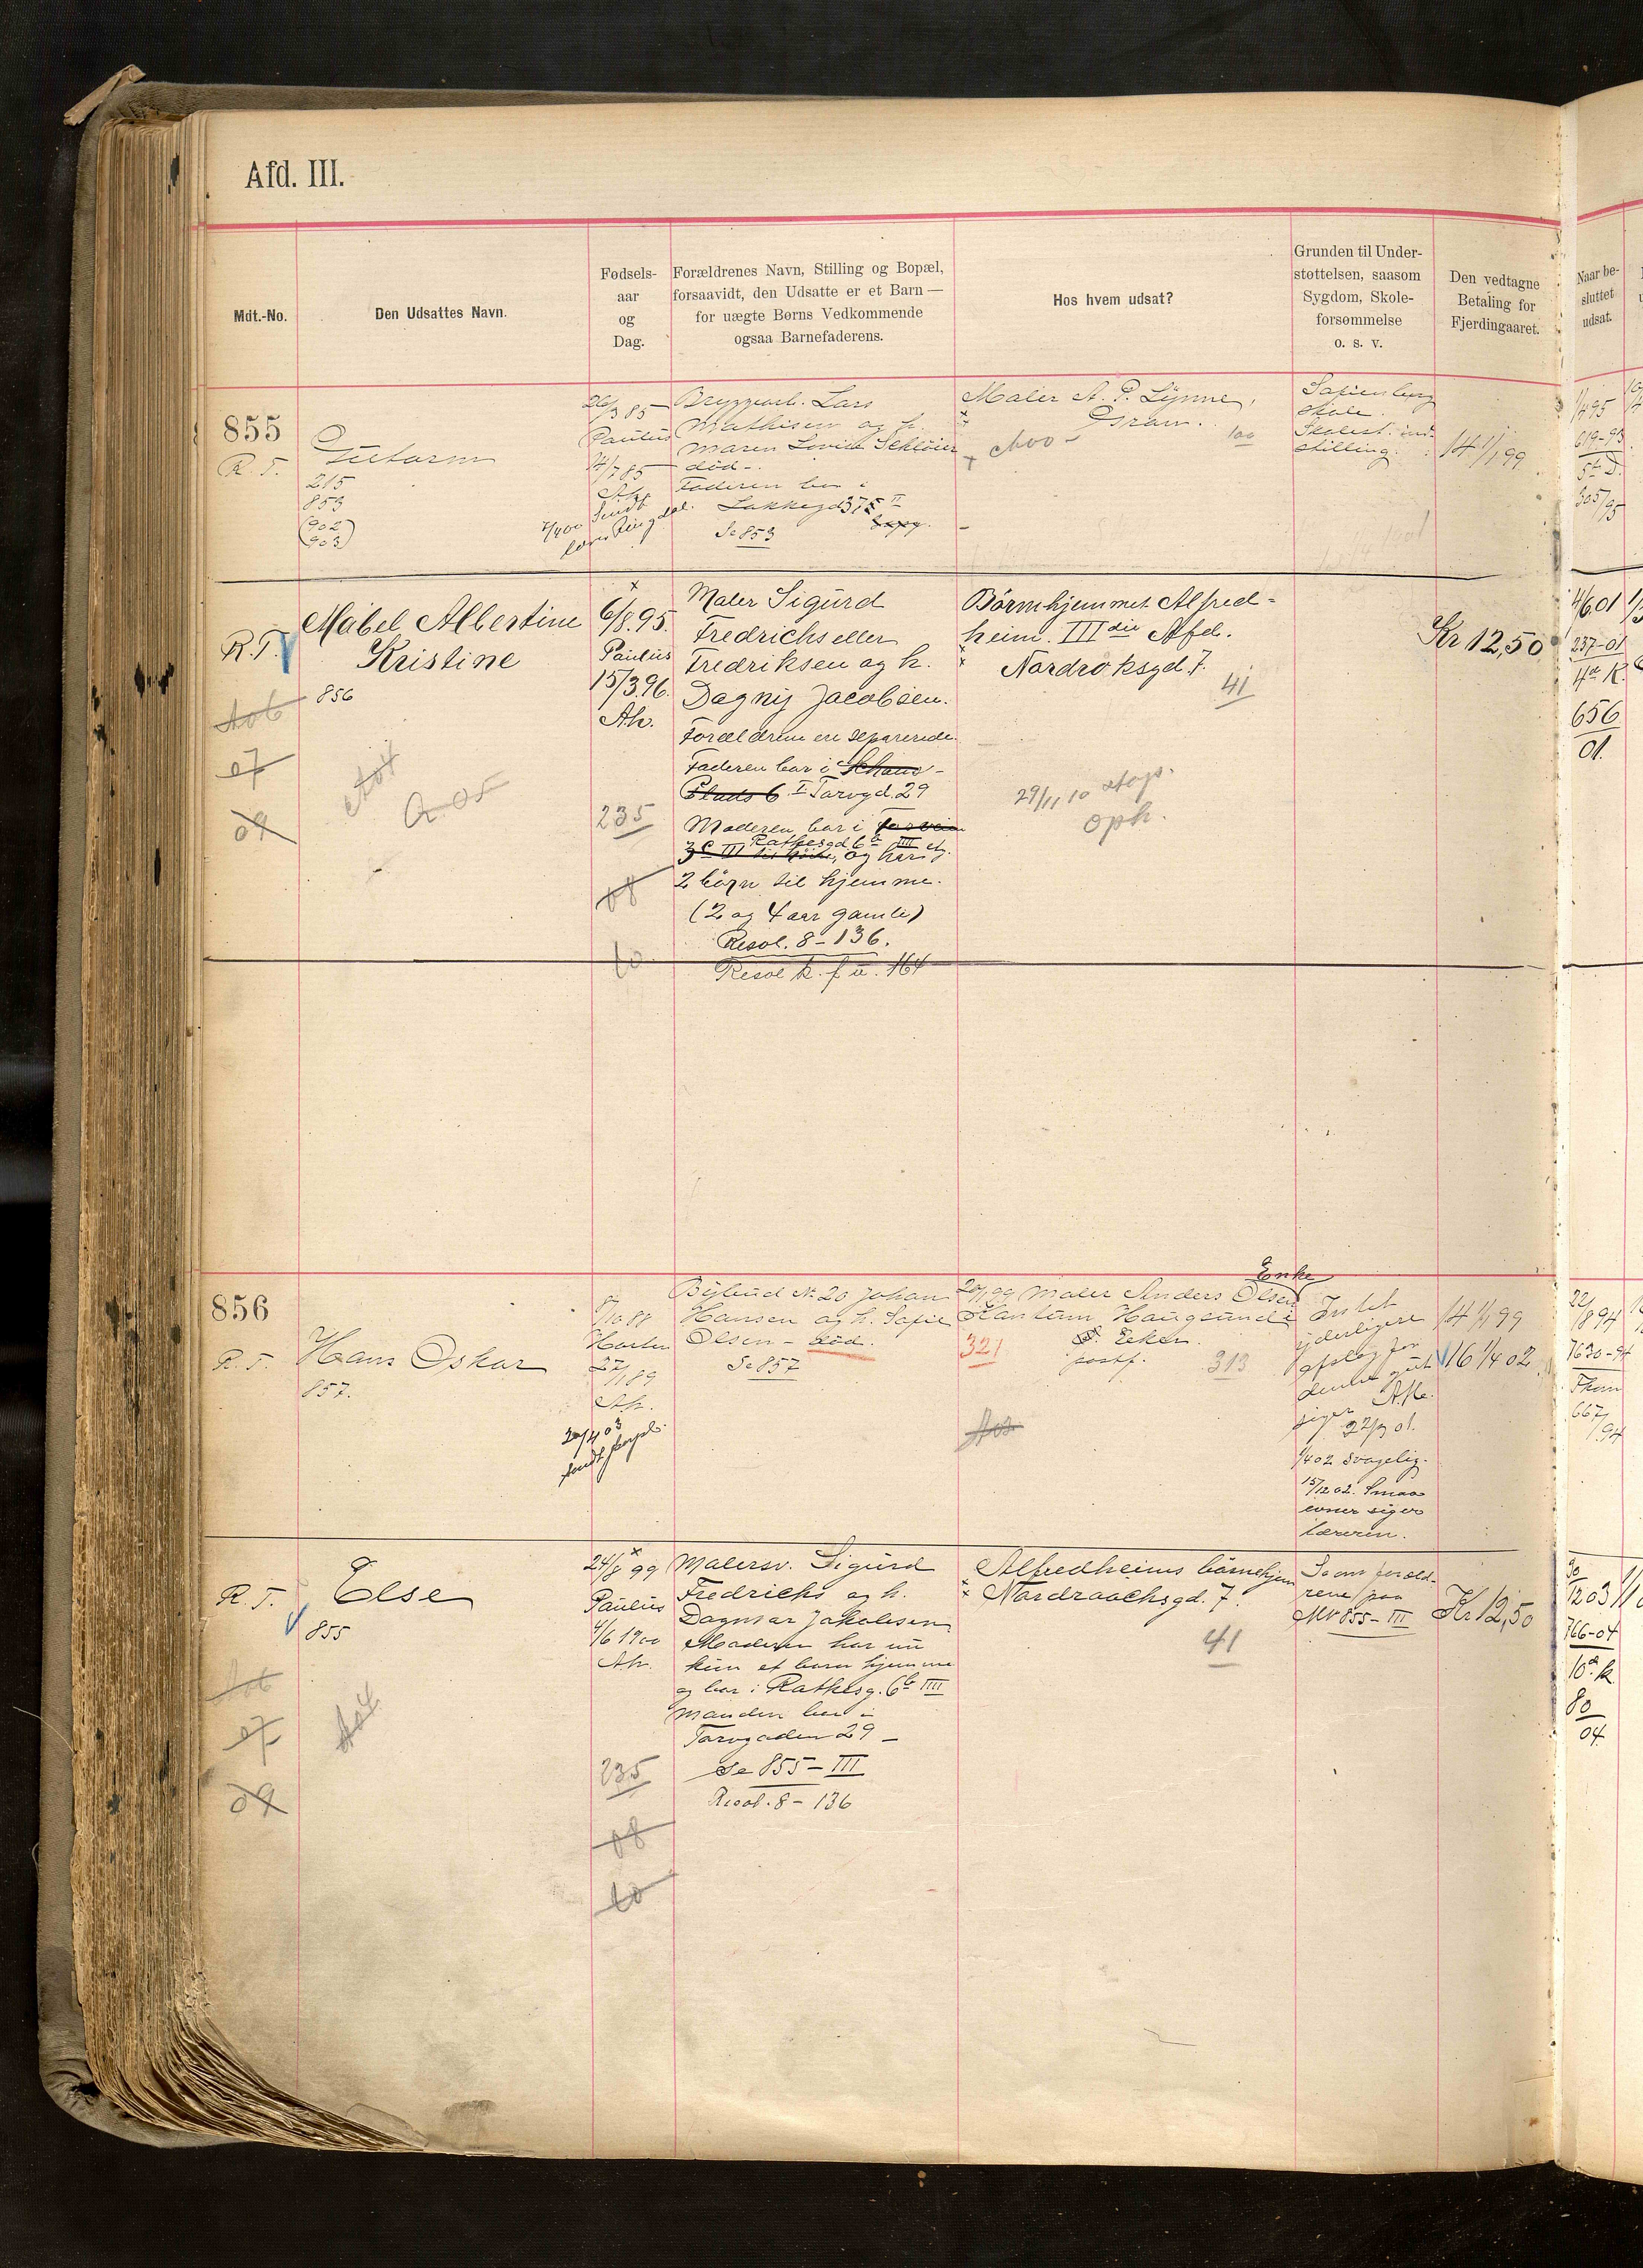 Afd. III.
Mdt.-No.
Den Udsattes Navn.
Fødsels-
aar
og
Dag.
Forældrenes Navn, Stilling og Bopæl,
forsaavidt, den Udsatte er et Barn —
for uægte Børns Vedkommende
ogsaa Barnefaderens.
Hos hvem udsat?
Grunden til Under-
støttelsen, saasom
Sygdom, Skole-
forsømmelse
o. s. v.
Den vedtagne
Betaling for
Fjerdingaaret.
Naar be-
sluttet
udsat.
855
R. T.
Gutorm
215
853
(902
903)
26/3 85
Paulus
14/7 85
Ak.
Bryggearb. Lars
Mathisen og h.
Maren Lovise Schlöier
död -.
Faderen bor i
Lakkegd 37 II
Se 853
Maler A. P. Lynne,
Gran.
100
Sofienberg
skole.
Skolest. ind-
stilling.
14 1/1 99
1/4 95
619-95
305/95
R. T.
Mabel Albertine
Kristine
856
6/8. 95.
Paulus
15/3 96.
Ak.
235
08
10
Maler Sigurd
Fredrichs eller
Fredriksen og h.
Dagny Jacobsen.
Forældrene ere separerede.
Faderen bor i Schaus-
Plads 6 I Torvgd. 29
Moderen bor i
Rathkesgd 6 b IIII
og har
2 börn til hjemme.
(2 og 4 aar gamle)
Resol. 8 - 136.
Resol k. f u. 164
Börnehjemmet Alfred-
heim. III die Afd.
Nordroksgd. 7.
41
29/11 10
oph.
Kr 12,50
4/6 01
237-01
4de K.
656
01.
07
09
856
R. T.
Hans Oskar
857.
8/10 88
27/1 89
Ak.
20/4 03
Bybud No 20 Johan
Hansen og h. Sofie
Olsen - död.
Se 857
20/1 99 Maler Anders Olsen
Enke
Haugsund i
Eker
postf.
321
313
Intet
yderligere
afslag for
denne gut
siger
22/3 01.
1/4 02 svagelig.
15/12 02. Smaa
evner siger
læreren.
14 1/1 99
16 1/4 02
22/8 94
1630-94
667/94
R. T.
Else
855
24/8 99
Paulus
4/6 1900
Ak.
235
08
10
Malersv. Sigurd
Fredrichs og h.
Dagmar Jakobsen
Moderen har nu
kun et barn hjemme
og bor i Rathkesg. 6 b IIII
Manden bor i
Torvgaden 29 -
Se 855 - III
Resol. 8 - 136
Alfredheims barnehjem
Nordraachsgd. 7.
41
Som foræld-
rene paa
Mt 855 - III
Kr 12,50
30/12 03
766-04
10de k.
80
04
07
09